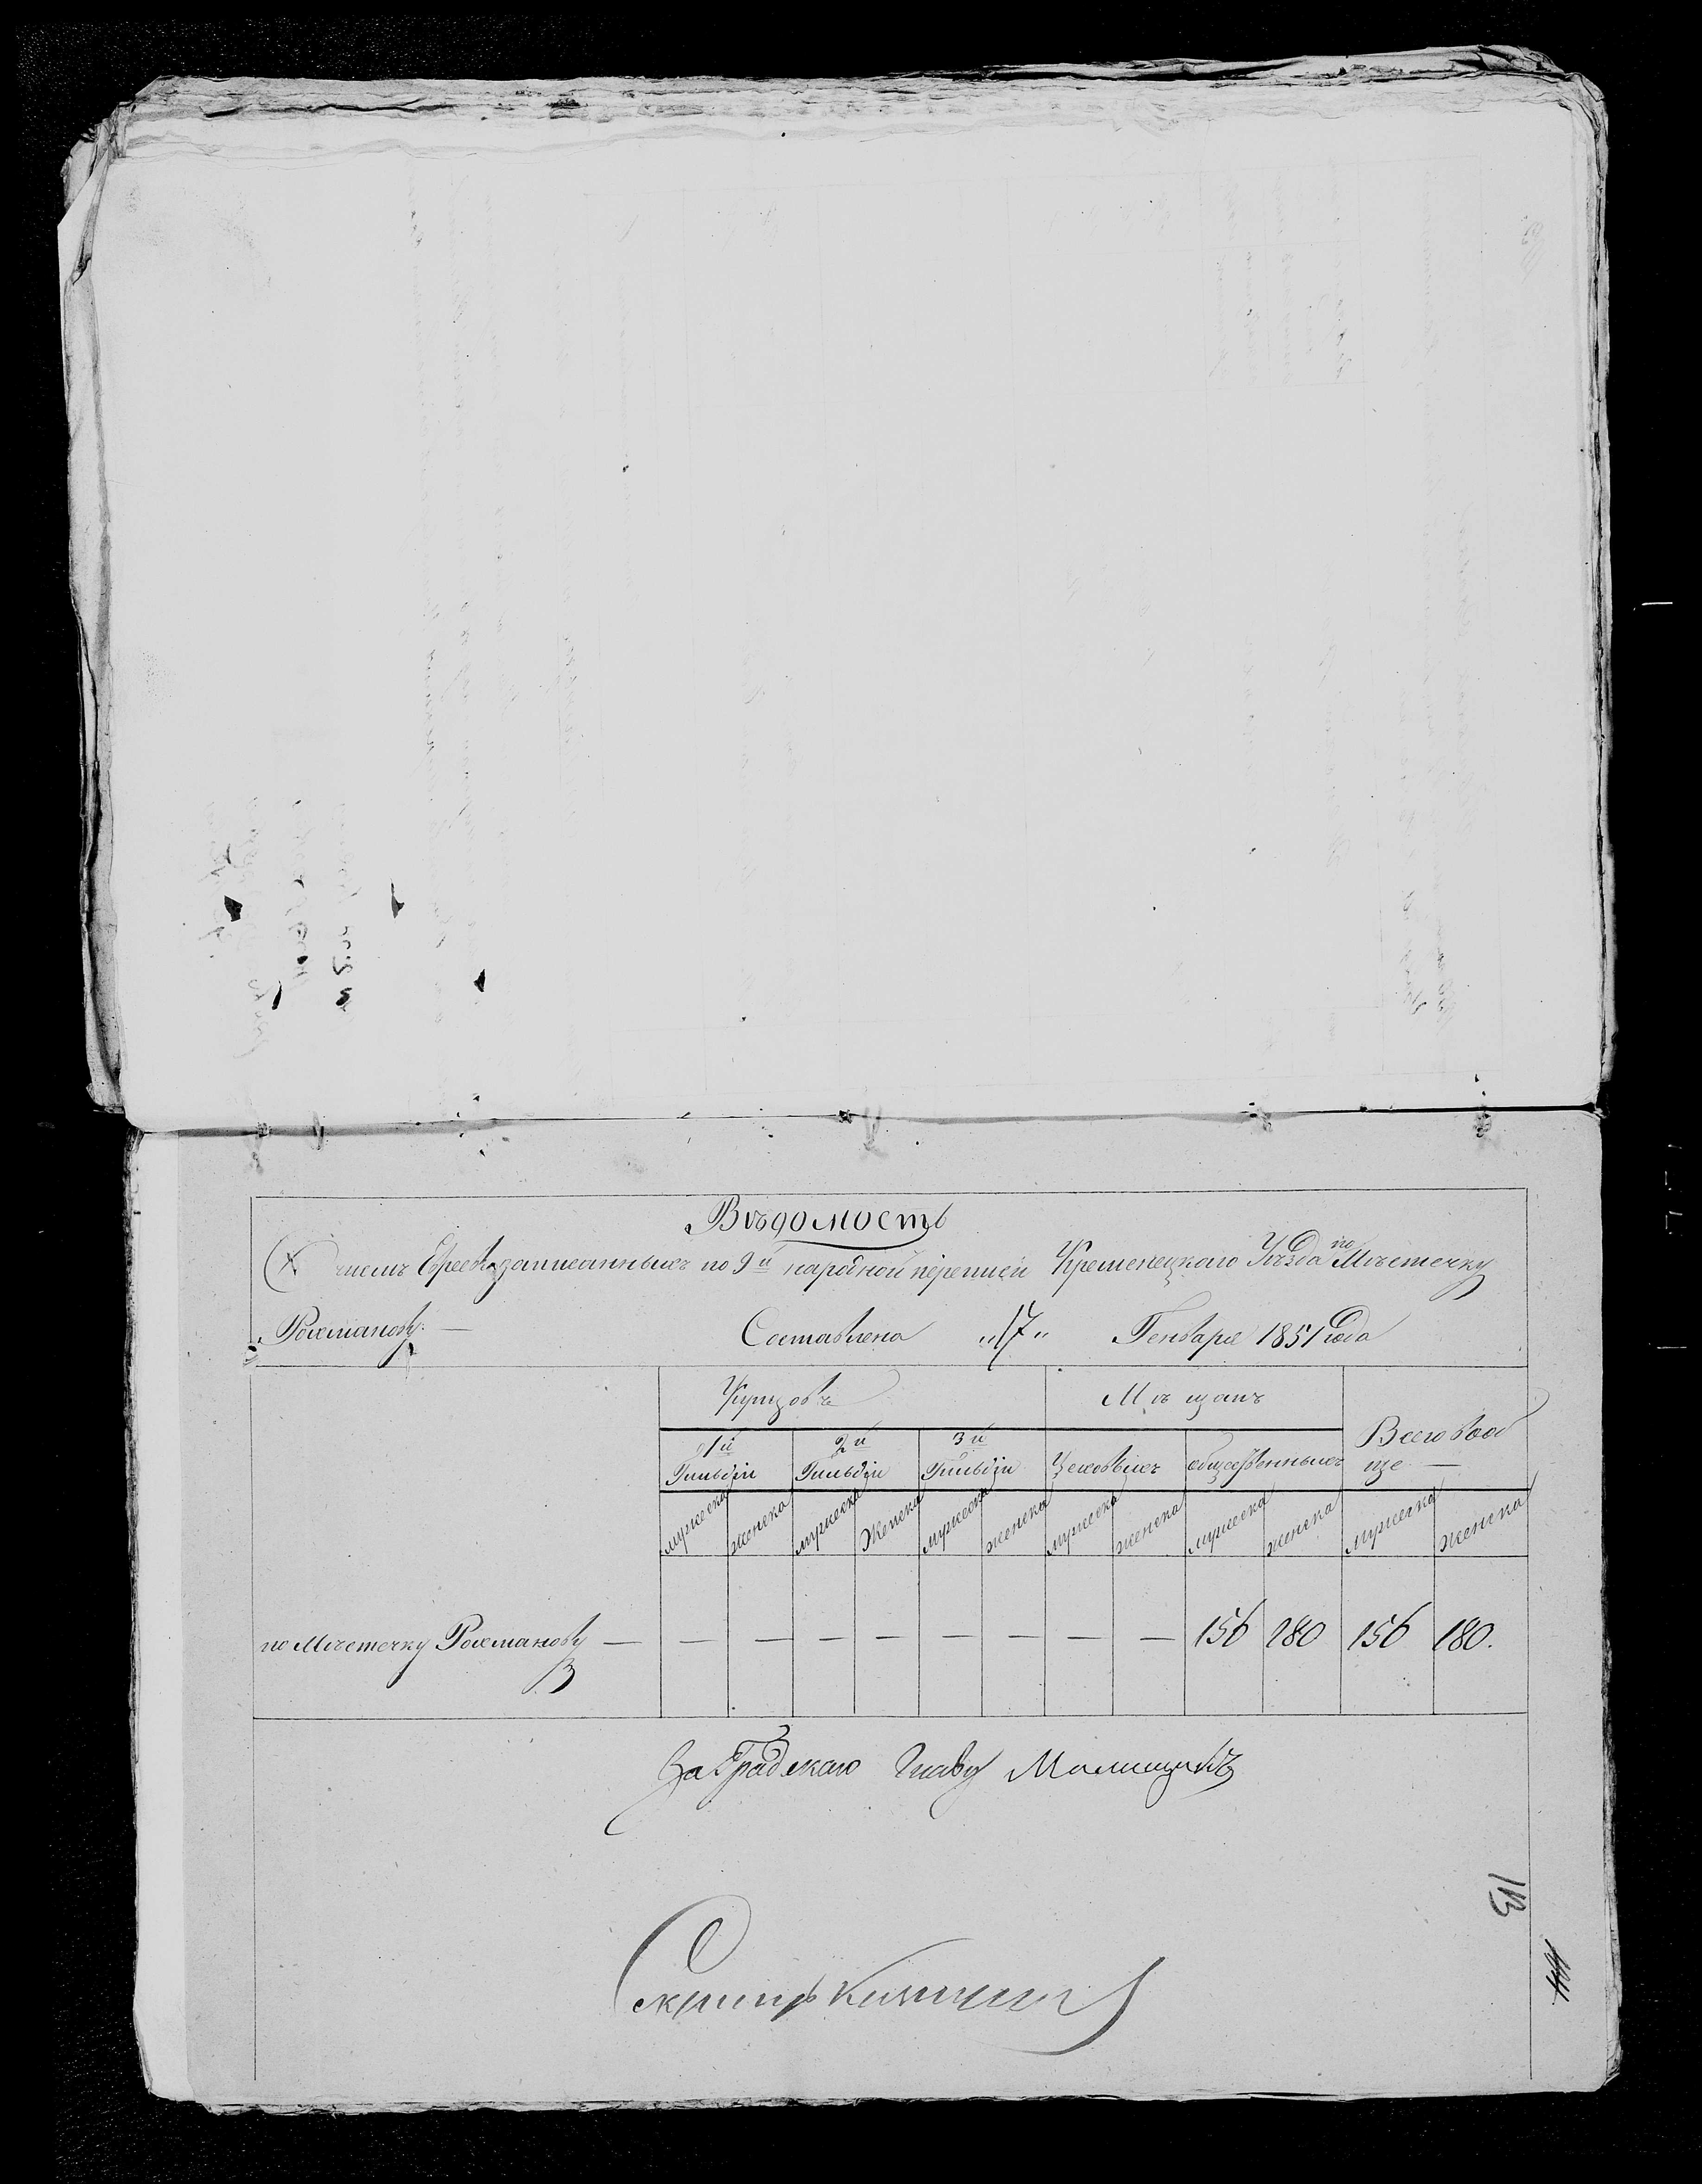 Вѣдомость
О числѣ Евреевъ записанныхъ по 9й народной переписи Кременецкаго Уѣзда по Мѣстечку
Рохманову. — Составлена „17„ Генваря 1851 года
Купцовъ Мѣщанъ Всего вооб
ще —
1й 2й 3й
Гильдіи Гильдіи Гильдіи Цеховыхъ общественныхъ
мужеска женска мужеска Женска мужеска женска мужеска женска мужеска женска мужеска женска
по Мѣстечку Рохманову — — — — — — — — — 156 180 156 180.
За Градскаго Главу
113